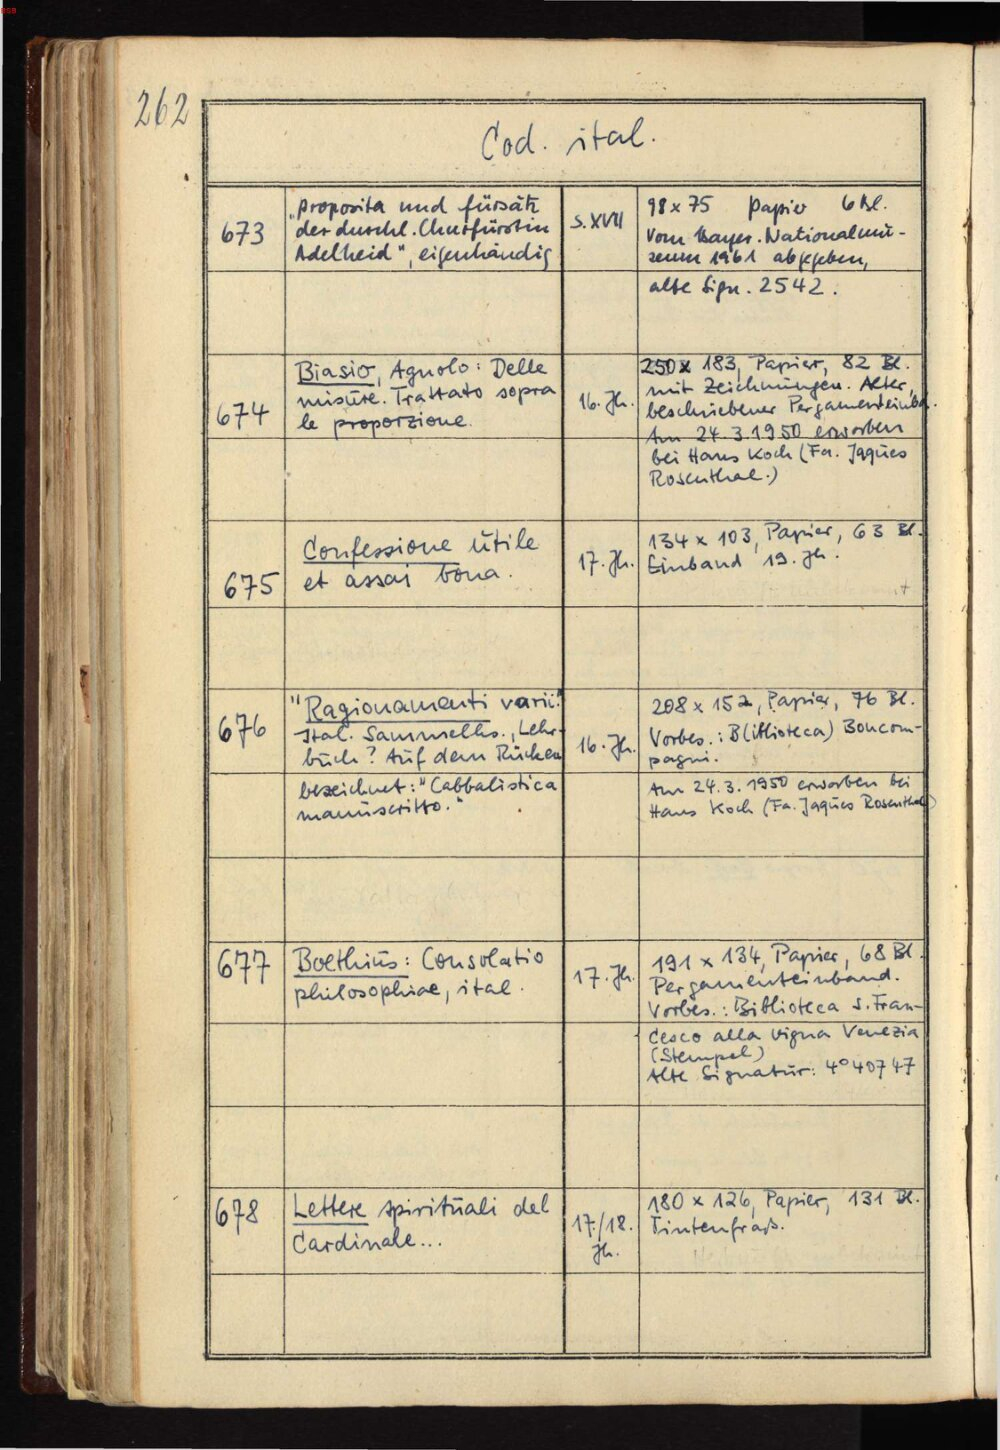 BSB
262
Cod. ital.
673
"Proposita und fürsätz
der durchl. Churfürstin
Adelheid", eigenhändig
s. XVII
98 x 75 Papier 6 Bl.
Vom Bayer. Nationalmu-
seum 1961 abgegeben,
alte Sign. 2542.
674
Biasio, Agnolo: Delle
misure. Trattato sopra
le proporzione.
16. Jh.
250 x 183, Papier, 82 Bl.
mit Zeichnungen. Alter,
beschriebener Pergamenteinbd.
Am 24.3.1950 erworben
bei Hans Koch (Fa. Jaques
Rosenthal.)
675
Confessione utile
et assai bona.
17. Jh.
134 x 103, Papier, 63 Bl.
Einband 19. Jh.
676
"Ragionamenti varii."
Ital. Sammelhs., Lehr-
buch? Auf dem Rücken
bezeichnet: "Cabbalistica
manuscritto."
16. Jh.
208 x 152, Papier, 76 Bl.
Vorbes.: B(iblioteca) Boncom-
pagni.
Am 24.3.1950 erworben bei
Hans Koch (Fa. Jaques Rosenthal)
677
Boethius: Consolatio
philosophiae, ital.
17. Jh.
191 x 134, Papier, 68 Bl.
Pergamenteinband.
Vorbes.: Biblioteca S. Fran-
cesco alla vigna Venezia
(Stempel)
Alte Signatur: 4° 40747
678
Lettere spirituali del
Cardinale...
17./18.
Jh.
180 x 126, Papier, 131 Bl.
Tintenfraß.